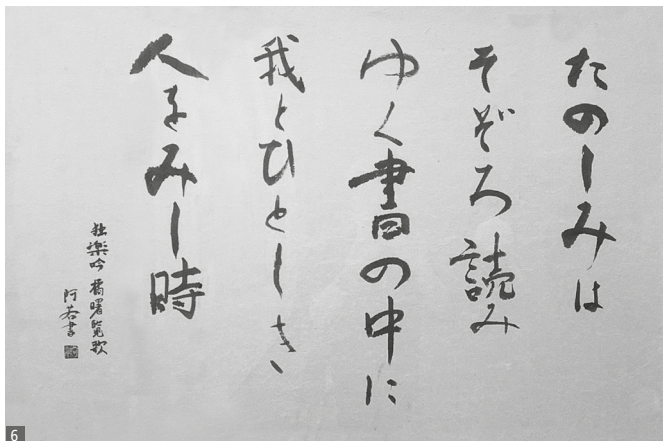 たのしみは
そゞろ読み
ゆく書の中に
我とひとしき
人をみし時
独楽吟 橘曙覧歌
阿若書
6